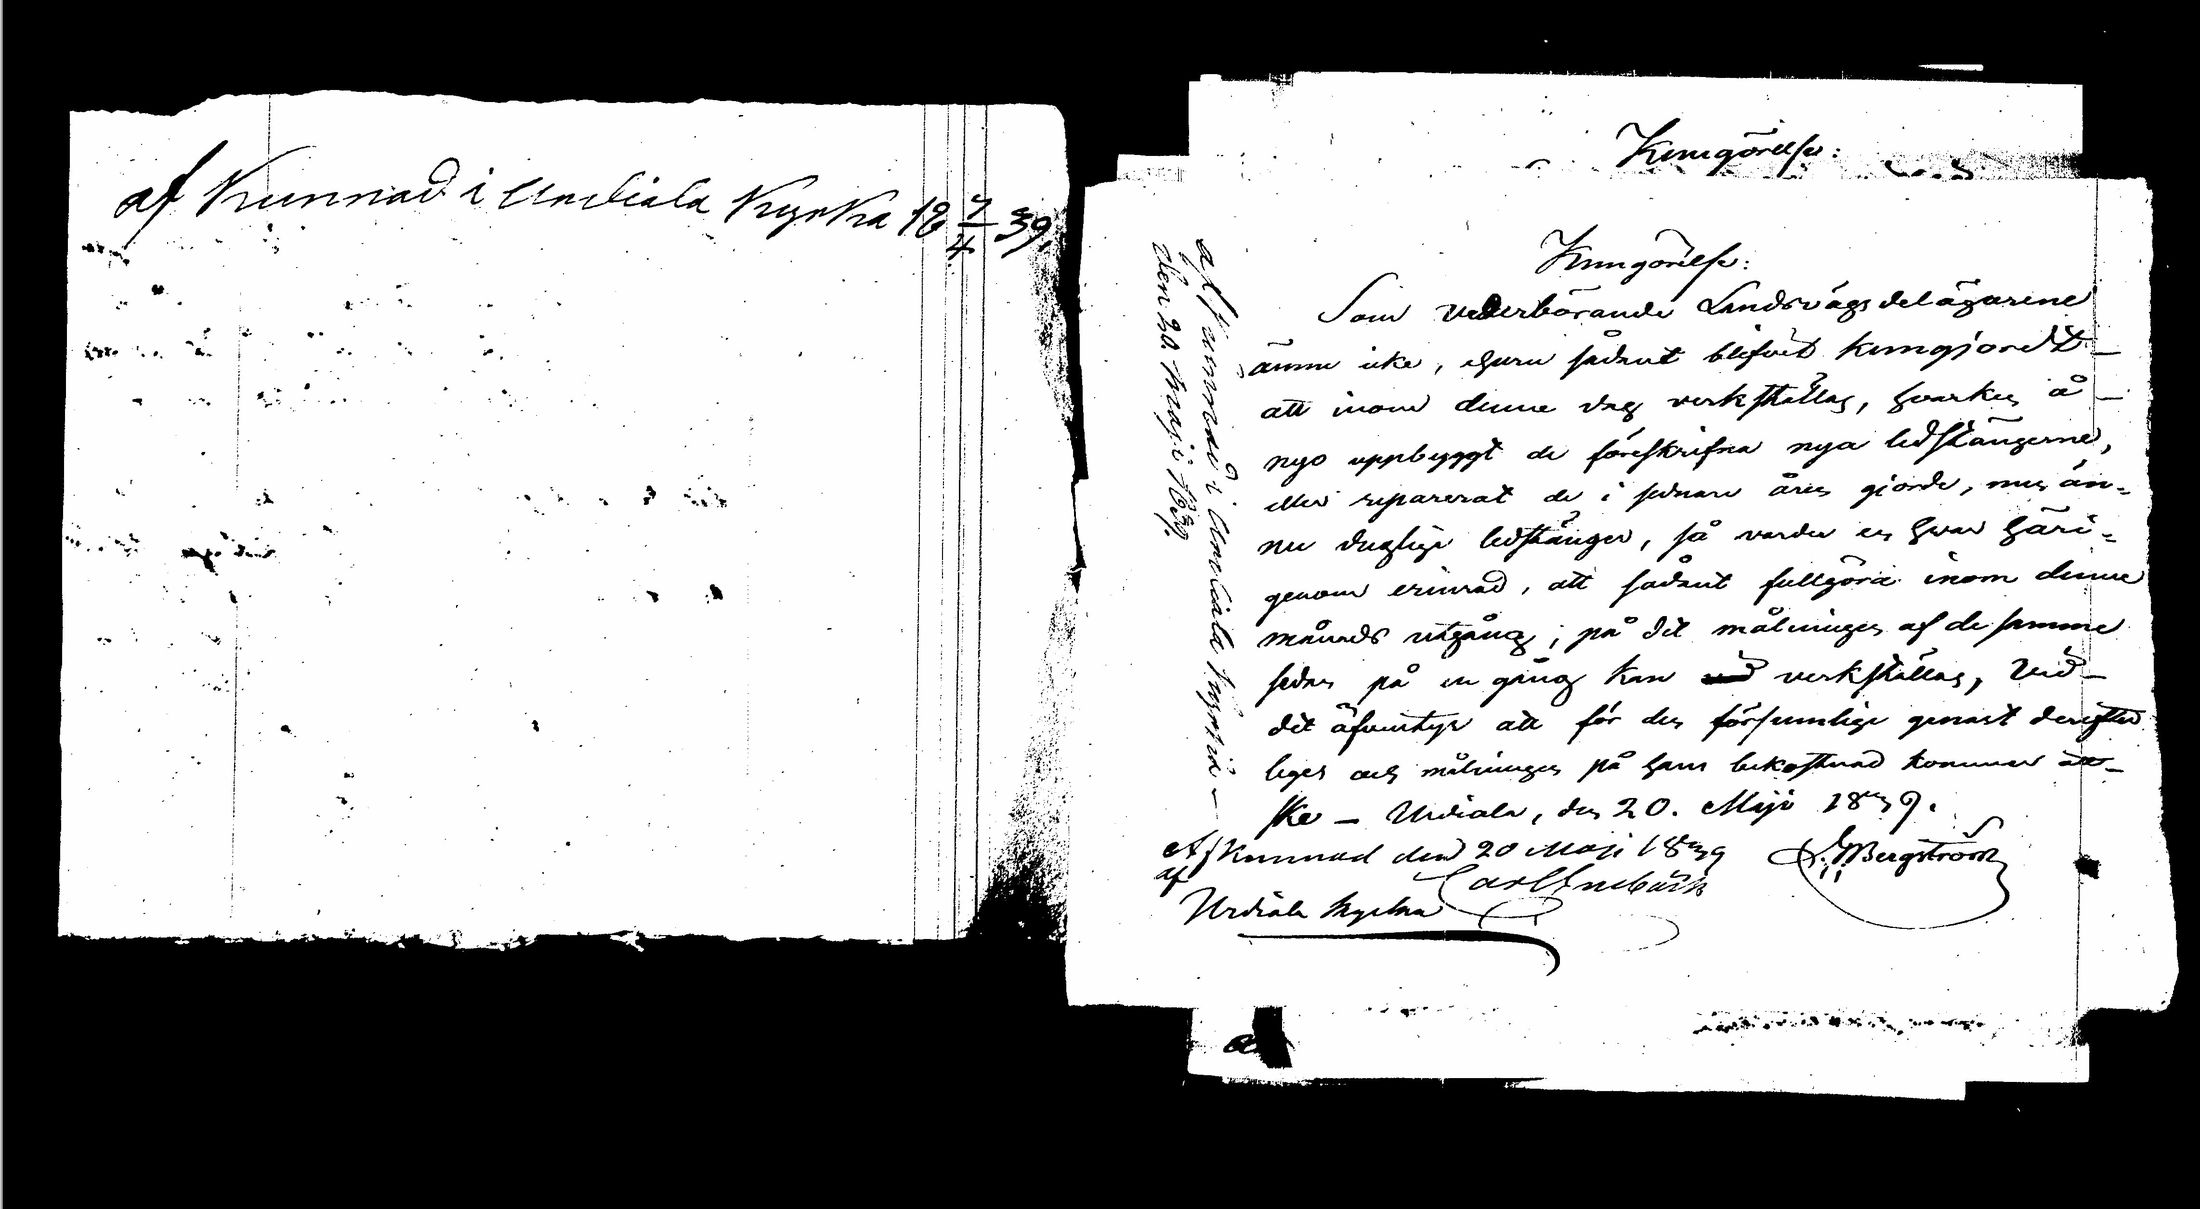 af Kunnad i Urdiala Kyrka 18 7/4 39.
Kungörelse:
Kungörelse:
Som vederbörande Landsvägsdelägarene
ännu icke, ehuru sådant blifvit kungjordt
att inom denne dag verkställas, hvarken å
nyo uppbyggt de föreskrifna nya ledstängerne,
eller reparerat de i sednare åren gjorde, men än-
nu duglige ledstänger, så varder en hvar häri-
genom erinrad, att sådant fullgöra inom denne
månads utgång; på det målningen af de samme
sedan på en gång kan verkställas, vid
det äfventyr att för den försumlige genast derefter
legen och målningen på hans bekostnad kommer att
ske – Urdiala, den 20. Maji 1839.
Bergström
Afkunnad den 20 Maji 1839
af Carl
Urdiala kyrka
afkunnad i Urdiala kyrka
den 20 maji 1839.